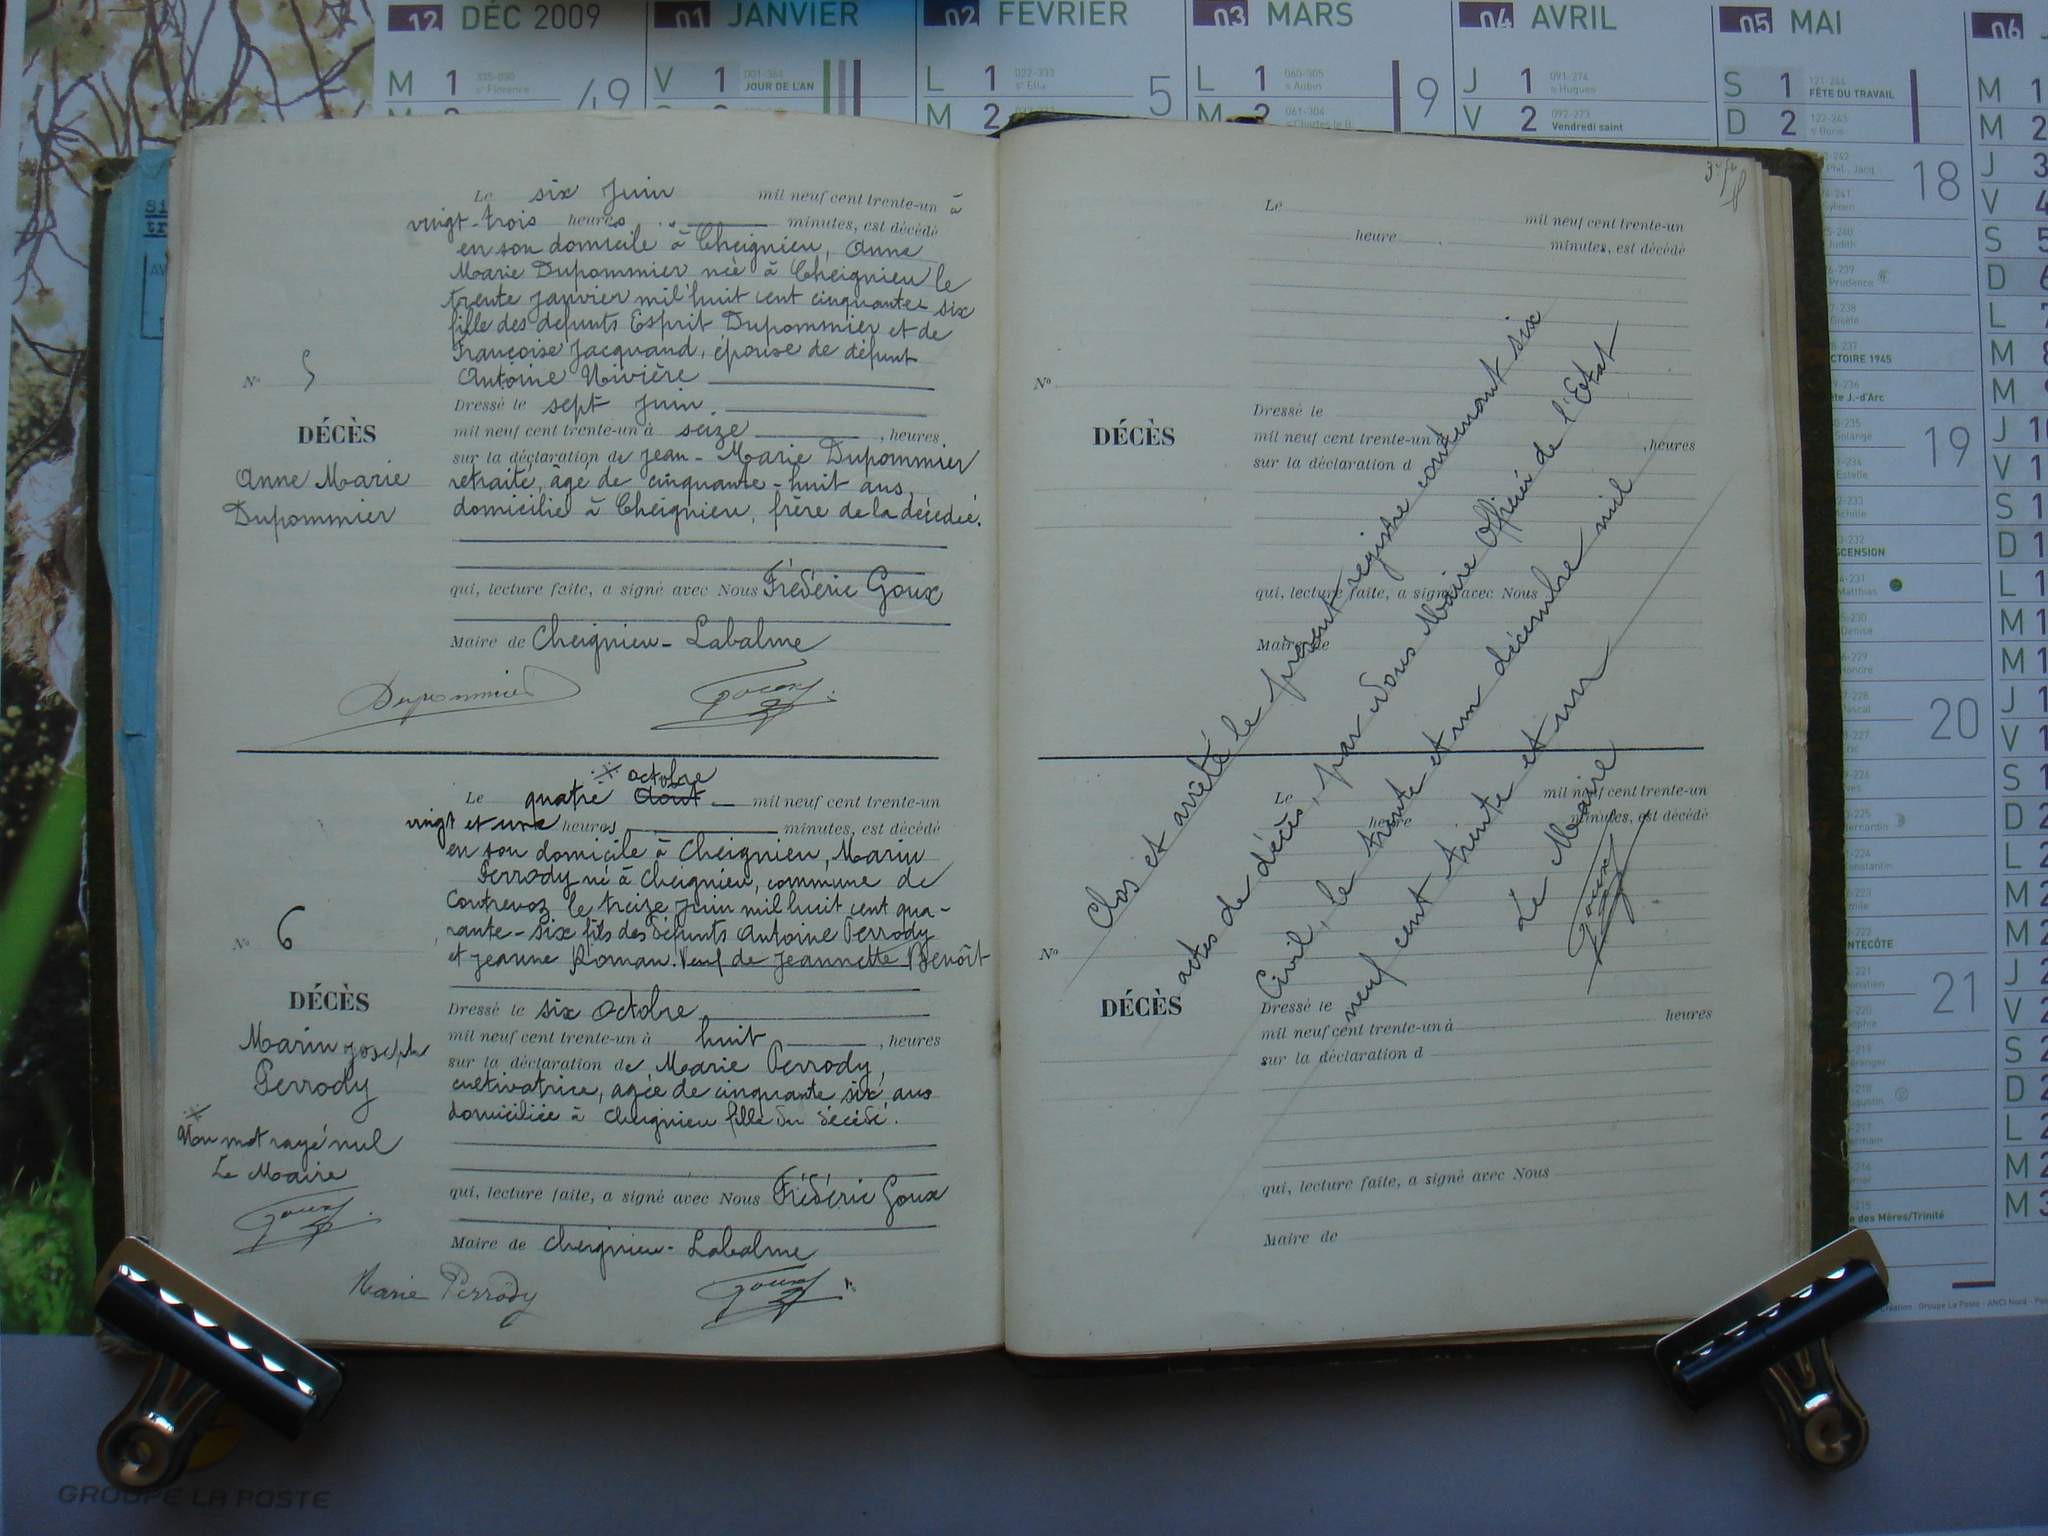 12 DÉC 2009
01 JANVIER
02 FÉVRIER
03 MARS
04 AVRIL
05 MAI
06
M 1 335-030 se Florence
49
V 1 001-364 JOUR DE L'AN
L 1 032-333 se Ella
M 2
5
L 1 060-305 s Aubin
M 2 061-304 s Charles le B.
9
J 1 091-274 s Hugues
V 2 092-273 Vendredi saint
S 1 121-244 FÊTE DU TRAVAIL
D 2 122-243 s Boris
18
CTOIRE 1945
te J.-d'Arc
19
SCENSION
20
NTECÔTE
21
e des Mères/Trinité
Création : Groupe La Poste - ANCI Nord -
Le six Juin mil neuf cent trente-un à
vingt-trois heures minutes, est décédé
en son domicile à Cheignieu, Anne
Marie Dupommier née à Cheignieu le
trente janvier mil huit cent cinquante-six
fille des défunts Esprit Dupommier et de
Françoise Jacquand, épouse de défunt
Antoine Rivière
No 5
Dressé le sept Juin.
DÉCÈS
mil neuf cent trente-un à seize, heures
sur la déclaration de Jean-Marie Dupommier
Anne Marie
Dupommier
retraité, âgé de cinquante-huit ans,
domicilié à Cheignieu, frère de la décédée.
qui, lecture faite, a signé avec Nous Frédéric Goux
Maire de Cheignieu-Labalme
Dupommier Goux
octobre
Le quatre Aout mil neuf cent trente-un
vingt et une heures minutes, est décédé
en son domicile à Cheignieu, Marin
Perrody né à Cheignieu, commune de
Contrevoz le treize Juin mil huit cent qua-
rante-six fils des défunts Antoine Perrody
et Jeanne Roman. Veuf de Jeannette Benoît
No 6
DÉCÈS
Dressé le six Octobre
mil neuf cent trente-un à huit, heures
Marin Joseph
Perrody
sur la déclaration de Marie Perrody,
cultivatrice, agée de cinquante six ans
domiciliée à Cheignieu fille du décédé.
mot rayé nul
Le Maire
Goux
qui, lecture faite, a signé avec Nous Frédéric Goux
Maire de Cheignieu-Labalme
Marie Perrody Goux
Le mil neuf cent trente-un
heure minutes, est décédé
No
Dressé le
DÉCÈS
mil neuf cent trente-un à, heures
sur la déclaration d
qui, lecture faite, a signé avec Nous
Maire de
Clos et arrêté le présent registre contenant six
actes de décès, par Nous Maire Officier de l'Etat
Civil, le trente et un décembre mil
neuf cent trente et un
Le Maire
Goux
Le mil neuf cent trente-un
heure minutes, est décédé
No
DÉCÈS
Dressé le
mil neuf cent trente-un à heures
sur la déclaration d
qui, lecture faite, a signé avec Nous
Maire de
GROUPE LA POSTE